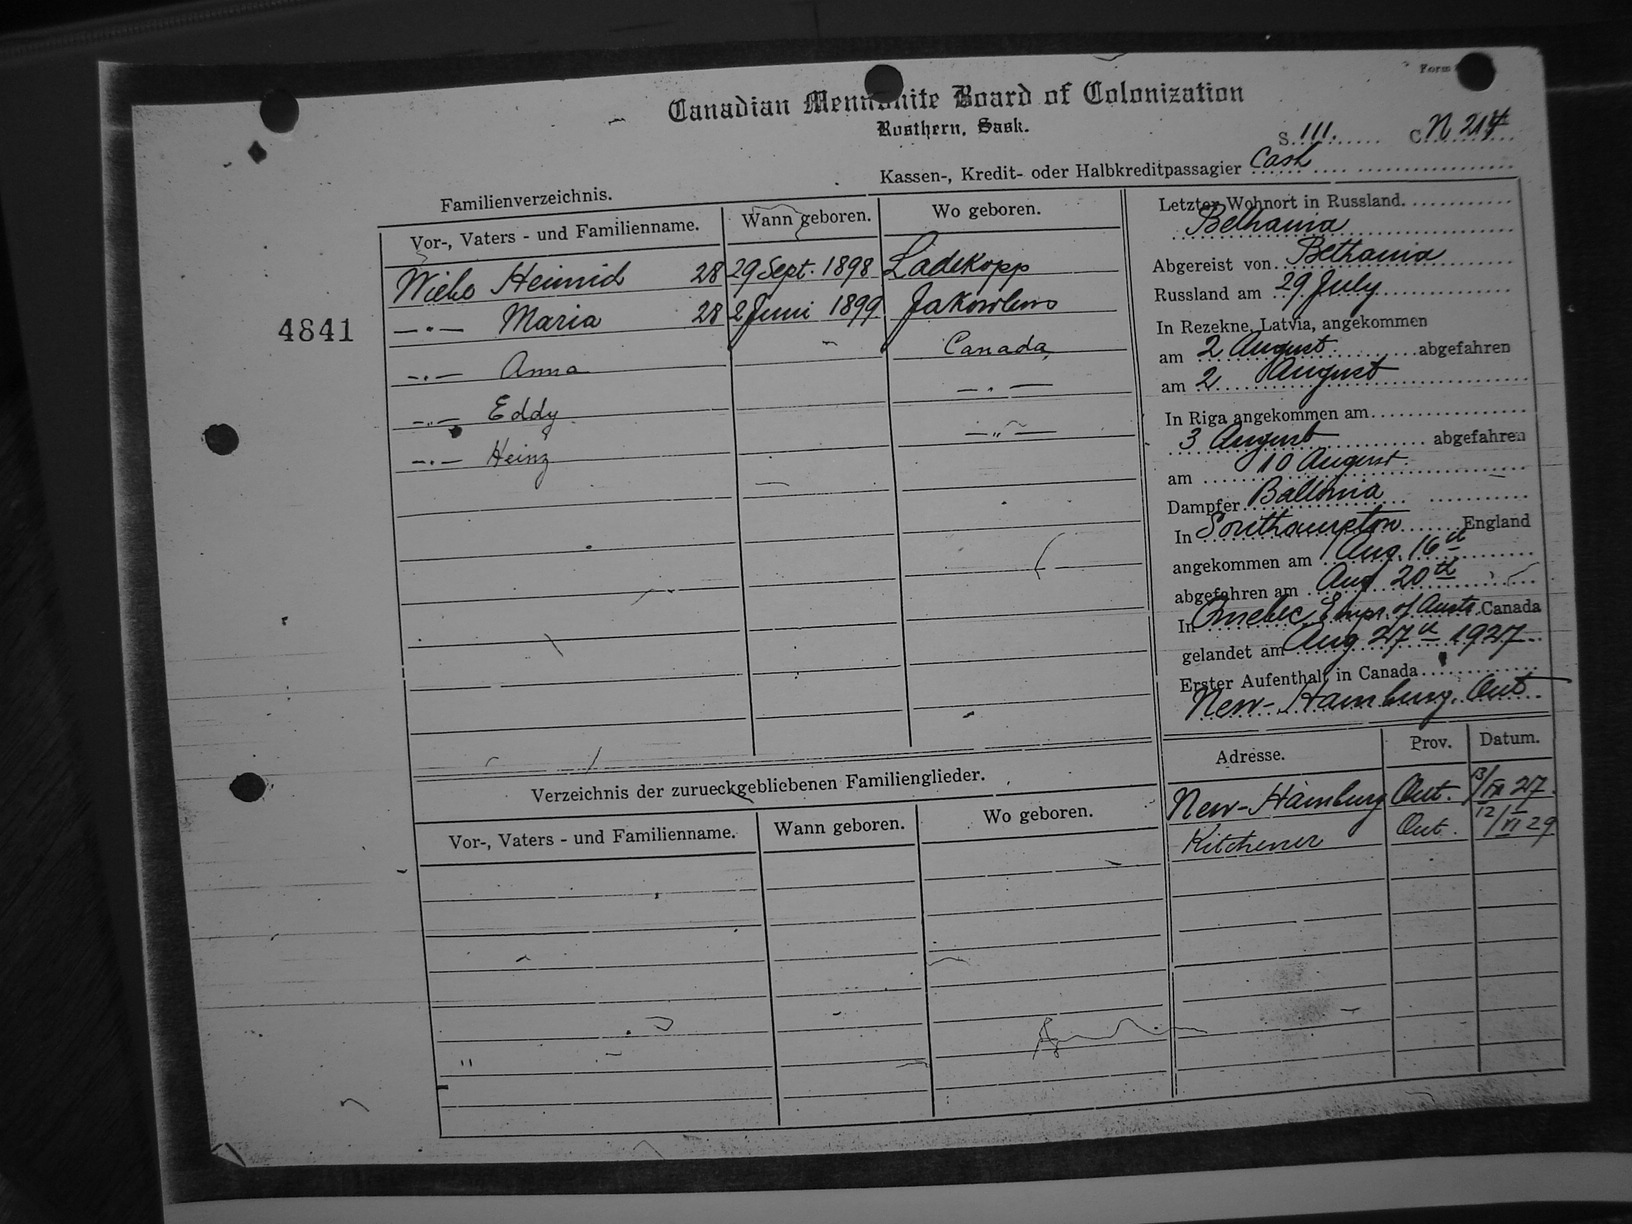 Form
Canadian Mennonite Board of Colonization
Rosthern, Sask.
S. 111. C. N 214
Kassen-, Kredit- oder Halbkreditpassagier Cash
Familienverzeichnis.
Vor-, Vaters - und Familienname. Wann geboren. Wo geboren.
Wiebo Heinrich 28 29 Sept. 1898 Ladekopp
—.— Maria 28 2 Juni 1899 Jakowlewo
—.— Anna Canada
—„— Eddy —.—
—.— Heinz —„—
4841
Letzter Wohnort in Russland
Bethania
Abgereist von Bethania
Russland am 29 July
In Rezekne, Latvia, angekommen
am 2 August abgefahren
am 2 August
In Riga angekommen am
3 August abgefahren
am 10 August.
Dampfer Baltonia
In Southampton England
angekommen am Aug. 16th
abgefahren am Aug 20th
In Quebec, Empr. of Austr. Canada
gelandet am Aug 27th 1927
Erster Aufenthalt in Canada
New-Hamburg, Ont
Adresse. Prov. Datum.
New-Hamburg Ont. 13/IX 27.
Kitchener Ont. 12/VI 29
Verzeichnis der zurueckgebliebenen Familienglieder.
Vor-, Vaters - und Familienname. Wann geboren. Wo geboren.